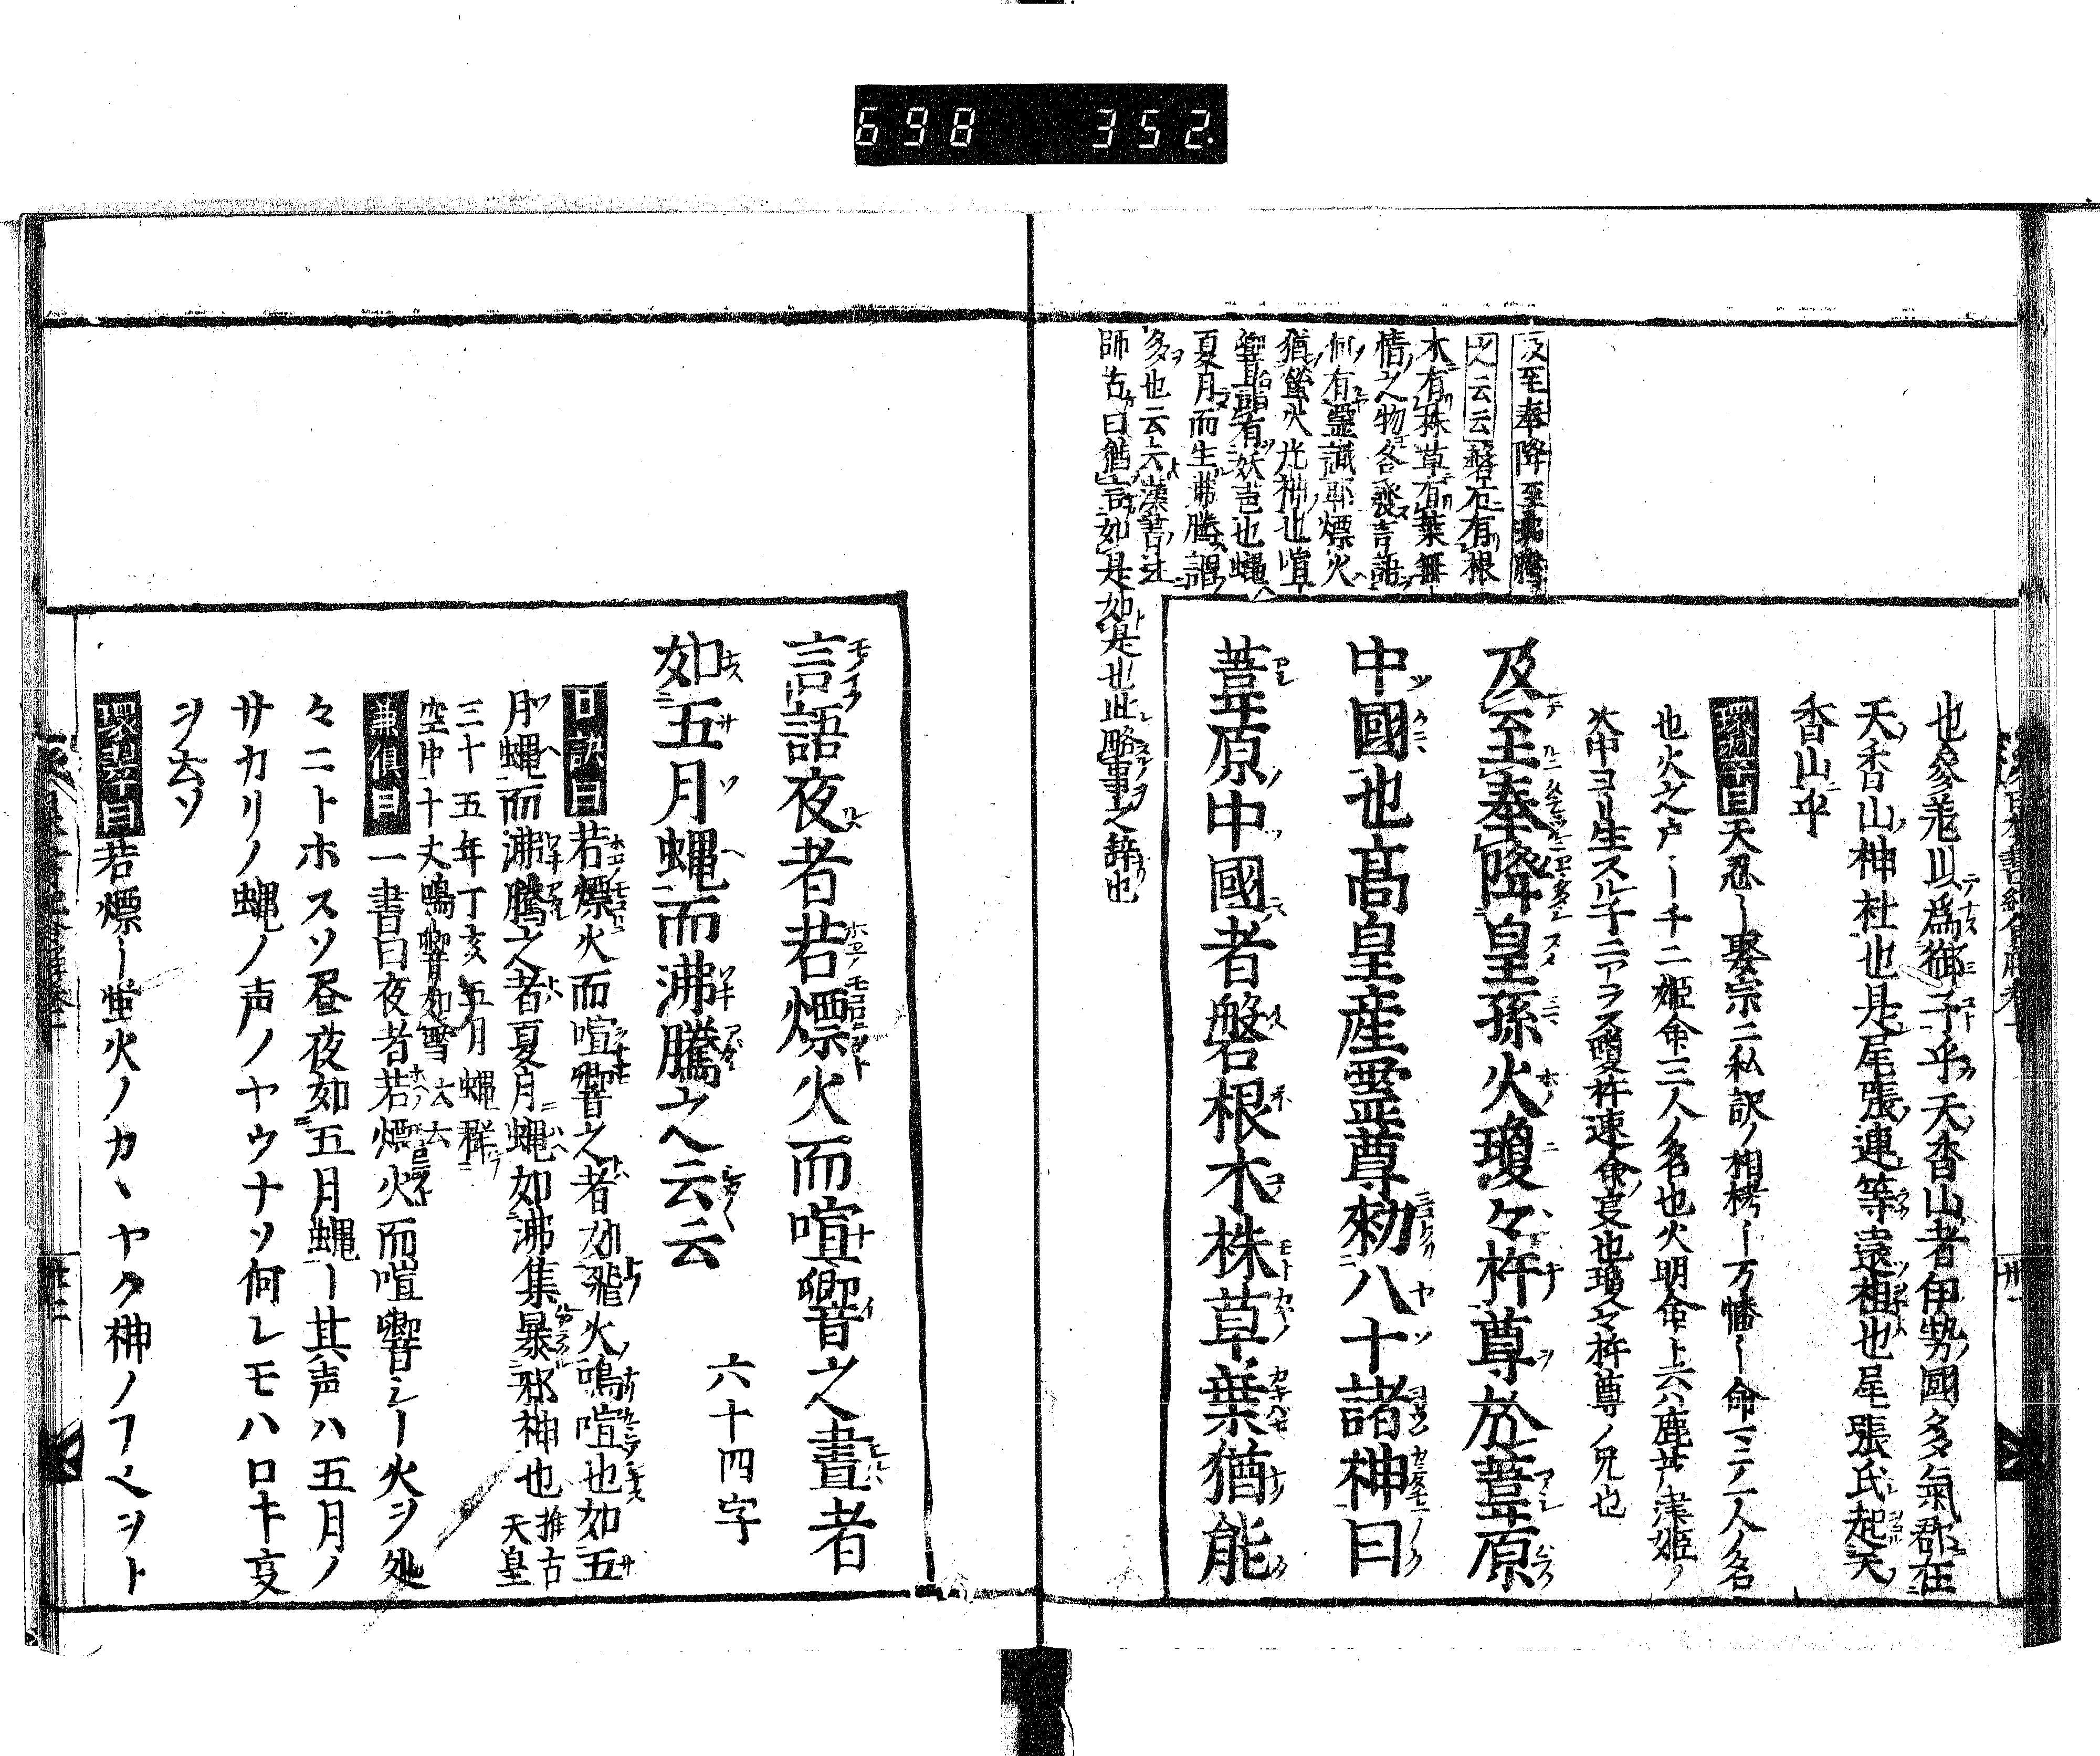 698 352.
及至奉降至沸騰
之云云磐石有根
木有株草有葉無
情之物各發言語
何有靈識耶熛火
猶螢火光拙也喧
響謂有妖言也蠅
夏月而生沸騰謂
多也云云漢書注
師古曰猶言如是如是也此略事之辞也
也參差以爲御子乎天香山者伊勢國多氣郡在
天香山神社也是尾張連等遠祖也尾張氏起天
香山乎
環翠曰天忍ー娶宗ニ私訳ノ栲ー万幡ー命一ニノ二人ノ名
也火之戸ー千二姫命三人ノ名也火明命ト云ハ鹿芦津姫ノ
火中ヨリ生スル子ニアラス瓊杵速命叓也瓊々杵尊ノ兄也
及至奉降皇孫火瓊々杵尊於葦原
中國也高皇産霊尊勅八十諸神曰
葦原中國者磐根木株草葉猶能
言語夜者若熛火而喧響之晝者
如五月蠅而沸騰之云云 六十四字
口訣曰若熛火而喧響之者如飛火鳴喧也如五
月蠅而沸騰之者夏月蠅如沸集暴邪神也推古天皇
三十五年丁亥五月蠅群
空中十丈鳴響如雷云云
兼倶曰一書曰夜者若熛火而喧響シー火ヲ処
々ニトホスソ昼夜如五月蠅ー其声ハ五月ノ
サカリノ蠅ノ声ノヤウナソ何レモハロキ叓
ヲ云ソ
環翠曰若熛ー蛍火ノカヽヤク神ノアヘヲト